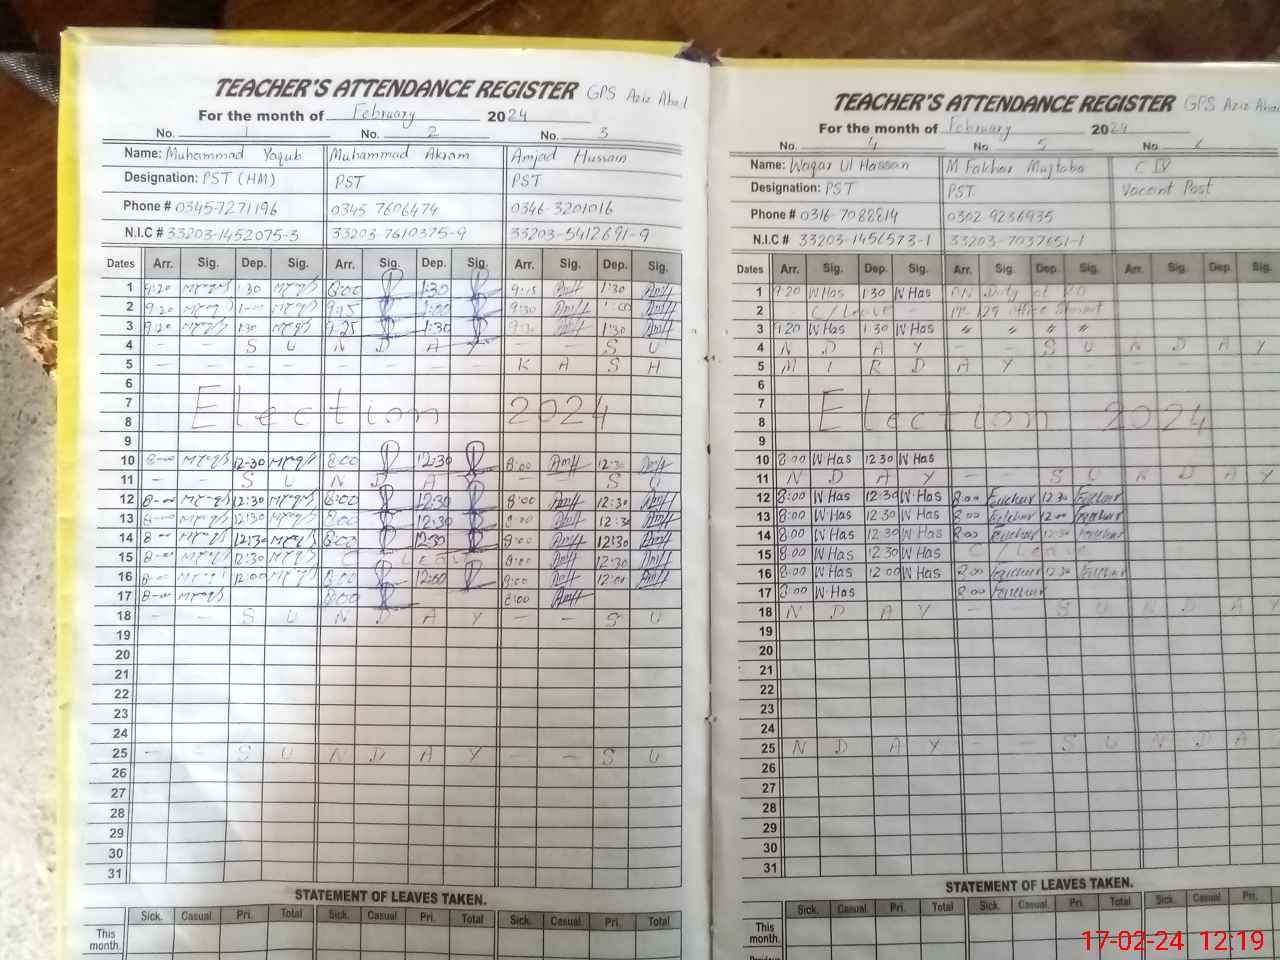 TEACHER'S ATTENDANCE REGISTER GPS Aziz Abad
For the month of February 2024
No. 1 No. 2 No. 3
Name: Muhammad Yaqub Muhammad Akram Amjad Hussain
Designation: PST (HM) PST PST
Phone # 0345-7271196 0345 7606474 0346-3201016
N.I.C # 33203-1452075-3 33203-7610375-9 33203-5412691-9
Dates Arr. Sig. Dep. Sig. Arr. Sig. Dep. Sig. Arr. Sig. Dep. Sig.
1 9:20 1:30 8:00 1:30 9:15 1:30
2 9:20 1-- 9:15 1:00 9:30 1:00
3 9:20 1:30 9:25 1:30 9:30 1:30
4 — — S U N D A Y — — S U
5 — — — — — — — — K A S H
6
7 Election 2024
8
9
10 8-00 12-30 8:00 12:30 8:00 12:30
11 — — S U N D A Y — — S U
12 8-00 12:30 8:00 12:30 8:00 12:30
13 8-00 12:30 8:00 12:30 8:00 12:30
14 8-00 12:30 8:00 12:30 8:00 12:30
15 8-00 12:30 C Leave 8:00 12:30
16 8-00 12:00 8:00 12:00 8:00 12:00
17 8-00 8:00 8:00
18 — — S U N D A Y — — S U
19
20
21
22
23
24
25 — — S U N D A Y — — S U
26
27
28
29
30
31
STATEMENT OF LEAVES TAKEN.
Sick. Casual. Pri. Total Sick. Casual. Pri. Total Sick. Casual. Pri. Total
This month.
TEACHER'S ATTENDANCE REGISTER GPS Aziz Abad
For the month of February 2024
No. 4 No. 5 No.
Name: Waqar Ul Hassan M Fakhar Mujtaba C IV
Designation: PST PST Vacant Post
Phone # 0316-7088814 0302-9236935
N.I.C # 33203-1456573-1 33203-7037651-1
Dates Arr. Sig. Dep. Sig. Arr. Sig. Dep. Sig. Arr. Sig. Dep. Sig.
1 9:20 W Has 1:30 W Has ON Duty at RO
2 - C / Leave - PP-129 office
3 9:20 W Has 1:30 W Has " " " "
4 N D A Y — — S U N D A Y
5 M I R D A Y
6
7 Election 2024
8
9
10 8:00 W Has 12:30 W Has
11 N D A Y — — S U N D A Y
12 8:00 W Has 12:30 W Has 8:00 Fakhar 12:30 Fakhar
13 8:00 W Has 12:30 W Has 8:00 Fakhar 12:00 Fakhar
14 8:00 W Has 12:30 W Has 8:00 Fakhar 12:30 Fakhar
15 8:00 W Has 12:30 W Has C / Leave
16 8:00 W Has 12:00 W Has 8:00 Fakhar 12:30 Fakhar
17 8:00 W Has 8:00 Fakhar
18 N D A Y — — S U N D A Y
19
20
21
22
23
24
25 N D A Y — — S U N D A
26
27
28
29
30
31
STATEMENT OF LEAVES TAKEN.
Sick. Casual. Pri. Total Sick. Casual. Pri. Total Sick.
This month.
17-02-24 12:19